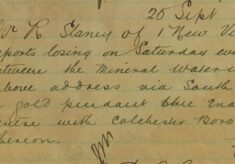 25 Sept
Mr R Slaney of 1 New Vi
eports losing on Saturday eve
between the Mineral Water
bove address via South
gold pendant blue ena
entre with Colchester Boro
hereon.